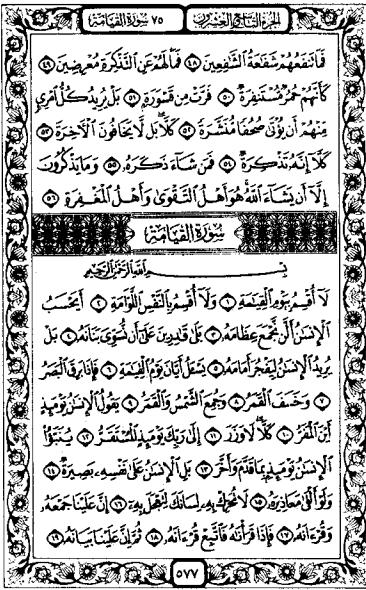 ٧٥ سُورَةُ القِيَامَة
الجزء التاسع والعشرون
فَمَا تَنفَعُهُمْ شَفَاعَةُ ٱلشَّافِعِينَ ٤٨ فَمَا لَهُمْ عَنِ ٱلتَّذْكِرَةِ مُعْرِضِينَ ٤٩
كَأَنَّهُمْ حُمُرٌ مُّسْتَنفِرَةٌ ٥٠ فَرَّتْ مِن قَسْوَرَةٍ ٥١ بَلْ يُرِيدُ كُلُّ ٱمْرِئٍ
مِّنْهُمْ أَن يُؤْتَىٰ صُحُفًا مُّنَشَّرَةً ٥٢ كَلَّا بَل لَّا يَخَافُونَ ٱلْآخِرَةَ ٥٣
كَلَّا إِنَّهُ تَذْكِرَةٌ ٥٤ فَمَن شَاءَ ذَكَرَهُ ٥٥ وَمَا يَذْكُرُونَ
إِلَّا أَن يَشَاءَ ٱللَّهُ هُوَ أَهْلُ ٱلتَّقْوَىٰ وَأَهْلُ ٱلْمَغْفِرَةِ ٥٦
سُورَةُ القِيَامَة
بِسْمِ ٱللَّهِ ٱلرَّحْمَٰنِ ٱلرَّحِيمِ
لَا أُقْسِمُ بِيَوْمِ ٱلْقِيَٰمَةِ ١ وَلَا أُقْسِمُ بِٱلنَّفْسِ ٱللَّوَّامَةِ ٢ أَيَحْسَبُ
ٱلْإِنسَٰنُ أَلَّن نَّجْمَعَ عِظَامَهُ ٣ بَلَىٰ قَٰدِرِينَ عَلَىٰ أَن نُّسَوِّيَ بَنَانَهُ ٤ بَلْ
يُرِيدُ ٱلْإِنسَٰنُ لِيَفْجُرَ أَمَامَهُ ٥ يَسْـَٔلُ أَيَّانَ يَوْمُ ٱلْقِيَٰمَةِ ٦ فَإِذَا بَرِقَ ٱلْبَصَرُ
٧ وَخَسَفَ ٱلْقَمَرُ ٨ وَجُمِعَ ٱلشَّمْسُ وَٱلْقَمَرُ ٩ يَقُولُ ٱلْإِنسَٰنُ يَوْمَئِذٍ
أَيْنَ ٱلْمَفَرُّ ١٠ كَلَّا لَا وَزَرَ ١١ إِلَىٰ رَبِّكَ يَوْمَئِذٍ ٱلْمُسْتَقَرُّ ١٢ يُنَبَّؤُا
ٱلْإِنسَٰنُ يَوْمَئِذٍ بِمَا قَدَّمَ وَأَخَّرَ ١٣ بَلِ ٱلْإِنسَٰنُ عَلَىٰ نَفْسِهِ بَصِيرَةٌ ١٤
وَلَوْ أَلْقَىٰ مَعَاذِيرَهُ ١٥ لَا تُحَرِّكْ بِهِ لِسَانَكَ لِتَعْجَلَ بِهِ ١٦ إِنَّ عَلَيْنَا جَمْعَهُ
وَقُرْءَانَهُ ١٧ فَإِذَا قَرَأْنَٰهُ فَٱتَّبِعْ قُرْءَانَهُ ١٨ ثُمَّ إِنَّ عَلَيْنَا بَيَانَهُ ١٩
٥٧٧